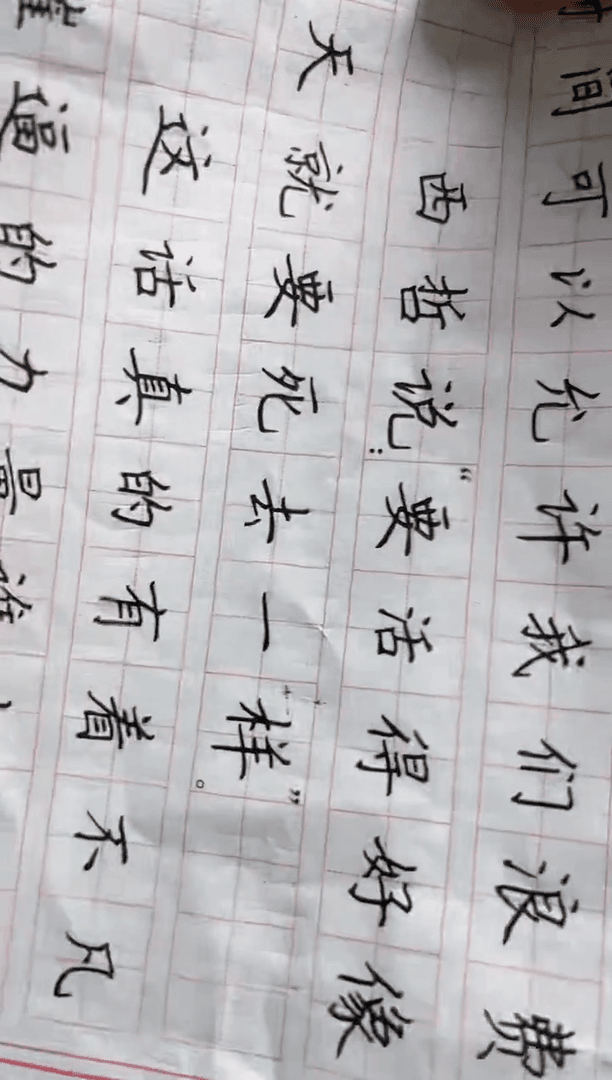 间可以允许我们浪费
西哲说：“要活得好像
天就要死去一样。”
这话真的有着不凡
逼的力量